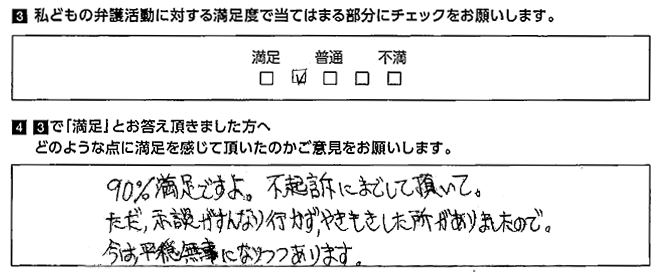 3 私どもの弁護活動に対する満足度で当てはまる部分にチェックをお願いします。
満足 普通 不満
□ ☑ □ □ □
4 3で「満足」とお答え頂きました方へ
どのような点に満足を感じて頂いたのかご意見をお願いします。
90%満足ですよ。不起訴にまでして頂いて。
ただ,示談がすんなり行かず,やきもきした所がありましたので。
今は,平穏無事になりつつあります。